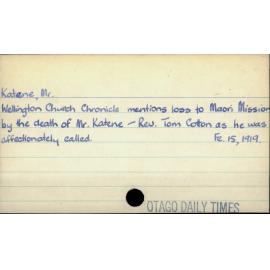 Katene, Mr.
Wellington Church Chronicle mentions loss to Maori Mission
by the death of Mr. Katene - Rev. Tom Cotton as he was
affectionately called.    Fe. 15, 1919.
OTAGO DAILY TIMES